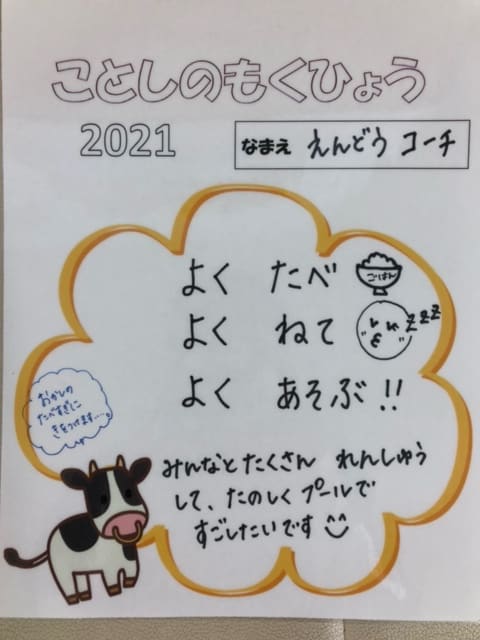 ことしのもくひょう
2021
なまえ えんどう コーチ
よく たべ
ごはん
よく ねて
zzz
よく あそぶ!!
おかしの
たべすぎに
きをつけます....
みんなとたくさん れんしゅう
して、たのしくプールで
すごしたいです